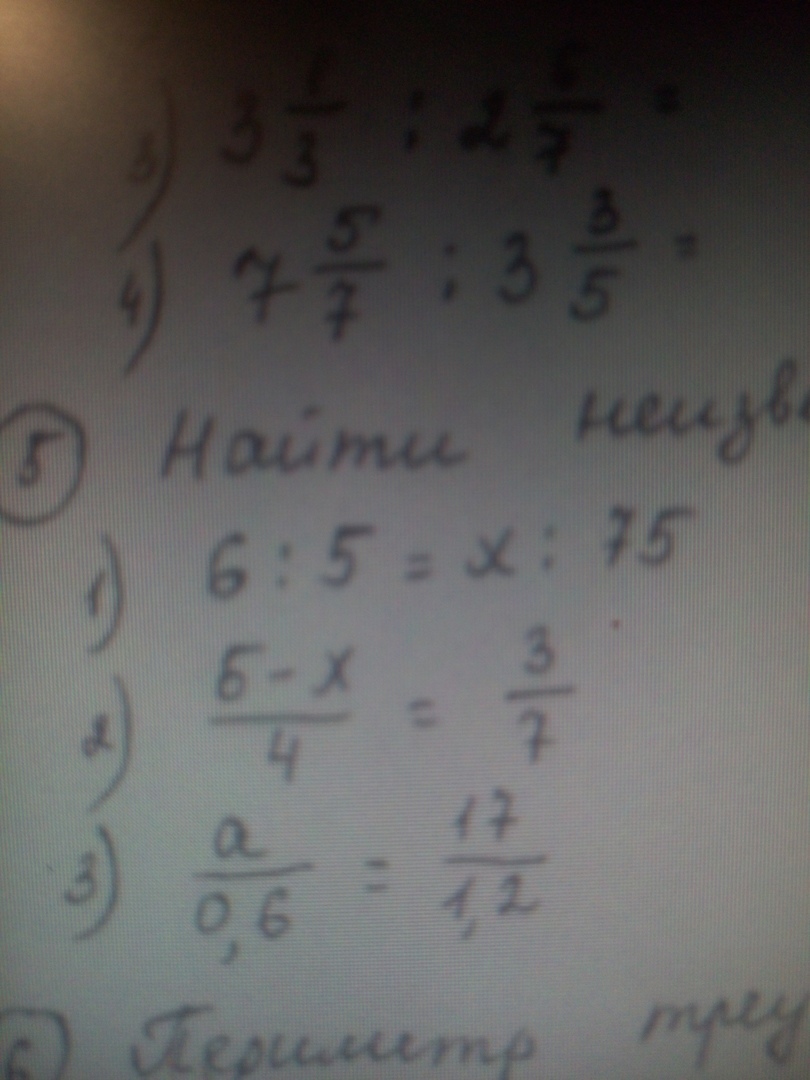 3) 3 1/3 : 2 6/7 =
4) 7 5/7 : 3 3/5 =
5 Найти
1) 6 : 5 = x : 75
2) (6 - x)/4 = 3/7
3) a/0,6 = 17/1,2
6) Периметр